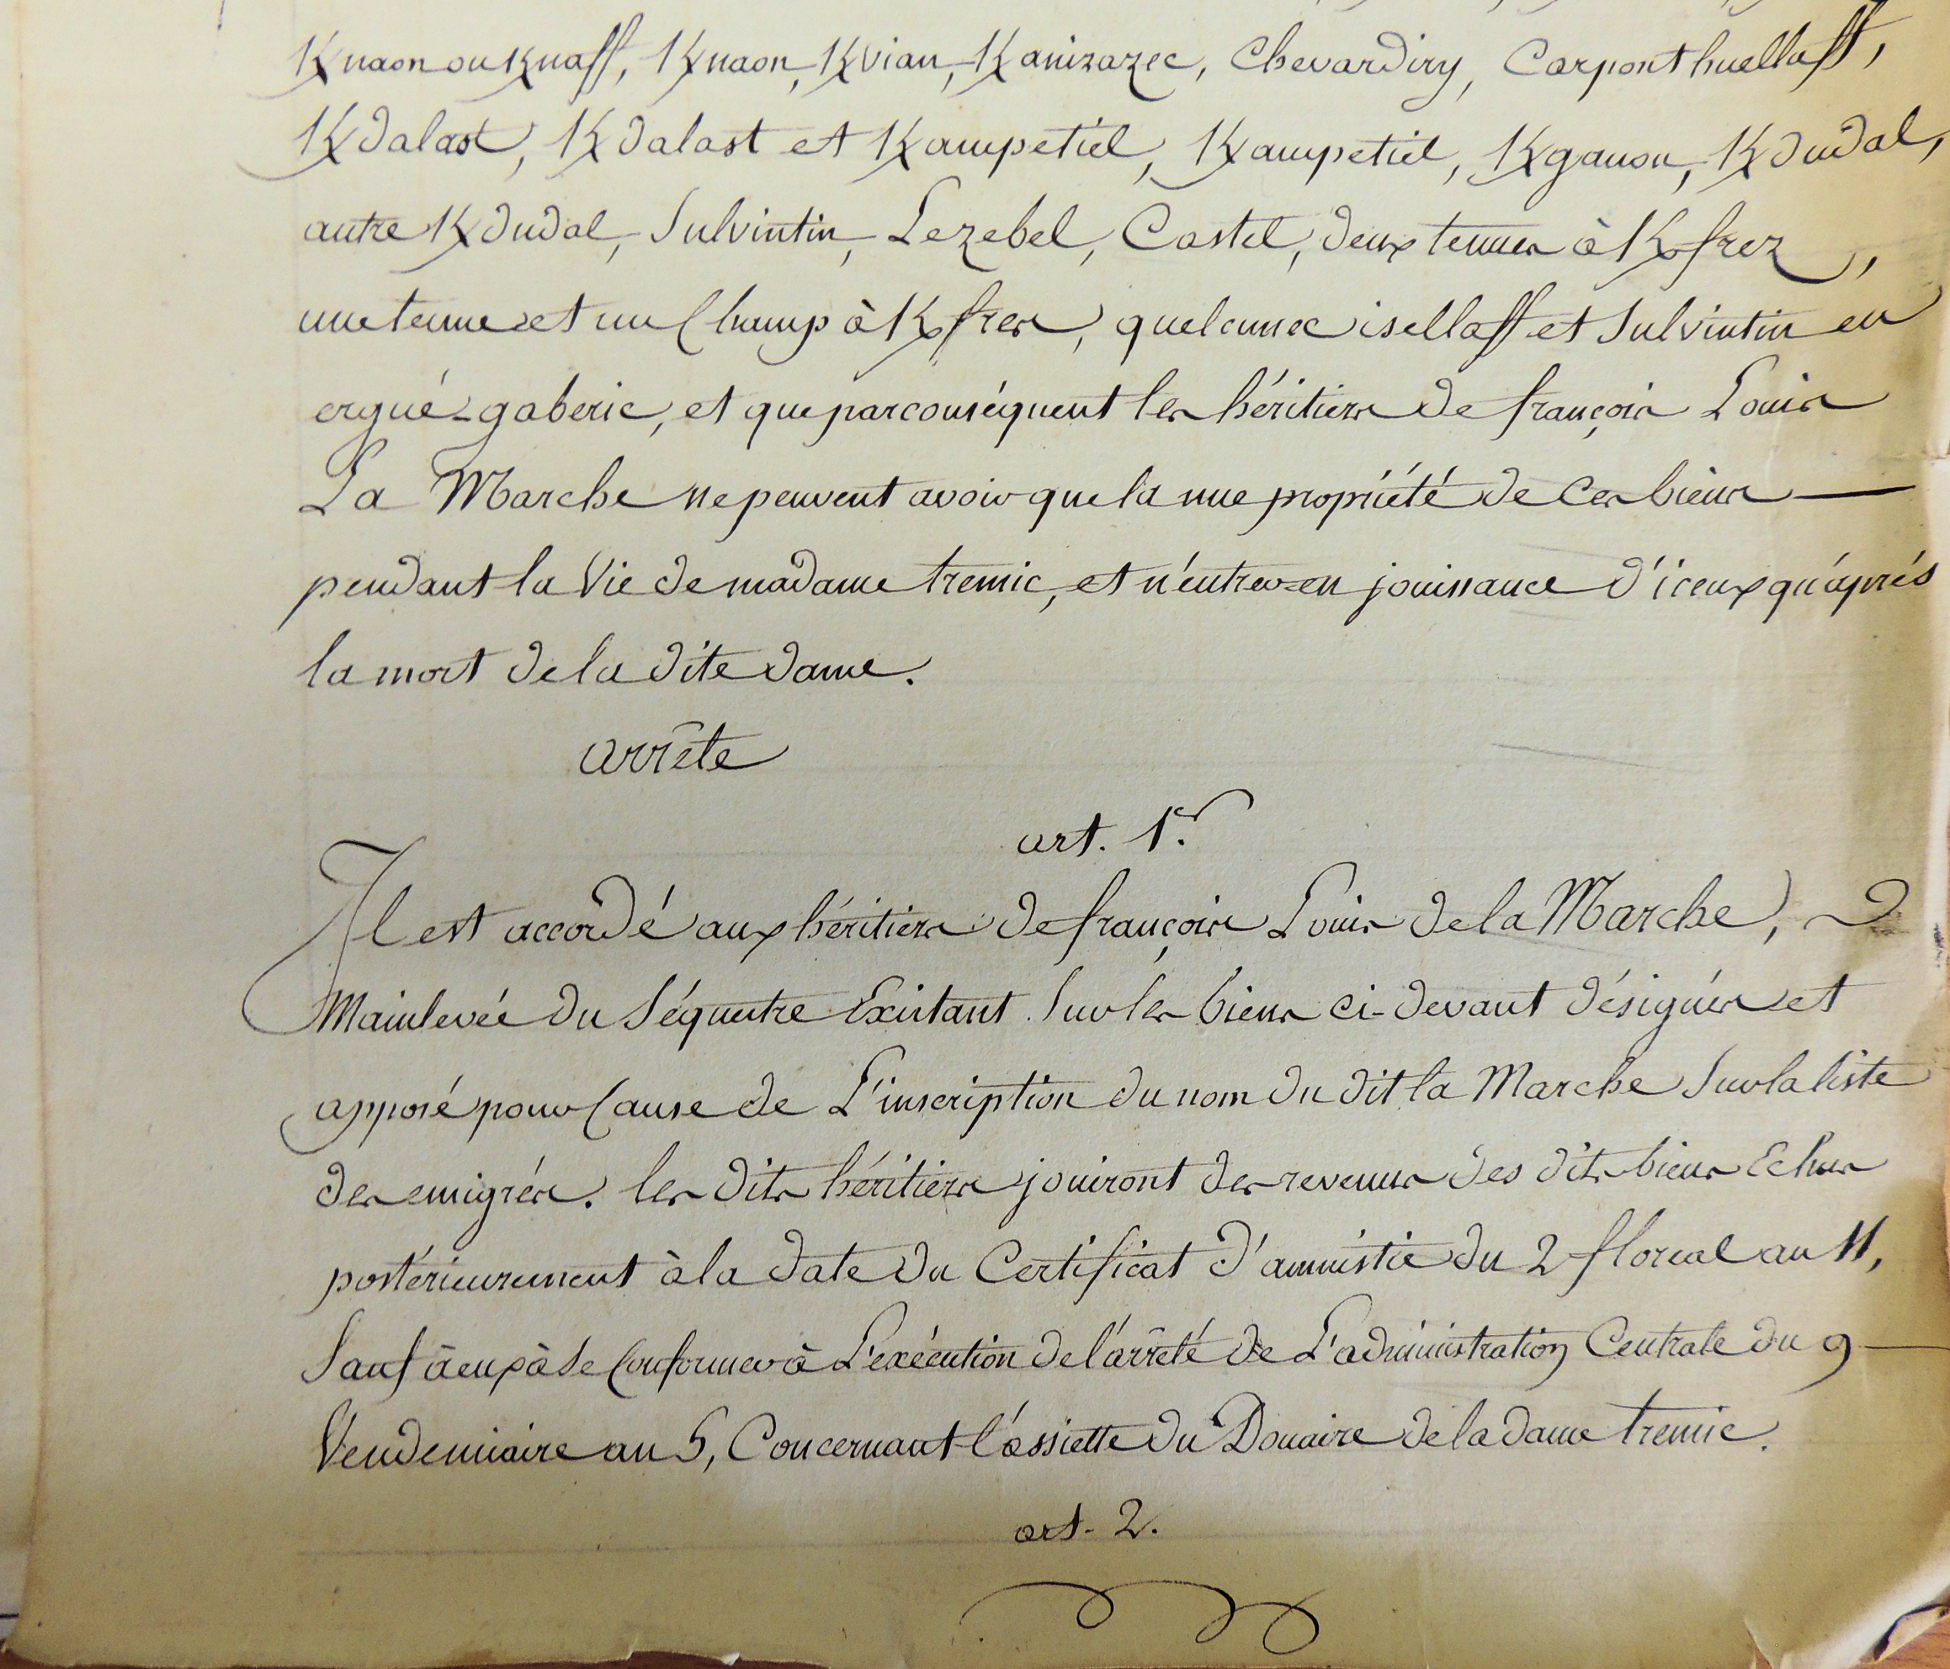 Ꝃnaon ou Ꝃnaff, Ꝃnaon, Ꝃvian, Ꝃanizazec, Chevardiry, Carpont huellaff,
Ꝃdalast, Ꝃdalast et Ꝃampetiel, Ꝃampetiel, Ꝃganon, Ꝃdudal,
autre Ꝃdudal, Sulvintin, Lezebel, Castel, deux tenues à Ꝃfrez,
une tenue et un Champ à Ꝃfres, quelennec isellaff et Sulvintin en
ergué-gaberic, et que par conséquent les héritiers de françois Louis
La Marche ne peuvent avoir que la nue propriété de Ces biens —
pendant la Vie de madame tremic, et n'entrer en jouissance d'iceux qu'après
la mort de la dite dame.
arrête
art. 1.er
Il est accordé aux héritiers de françois Louis de la Marche,
Mainlevée du Séquestre Existant Sur les biens ci-devant désignés et
apposé pour Cause de L'inscription du nom du dit la Marche Sur la liste
des emigrés. les dits héritiers jouiront des revenus des dits biens Echus
postérieurement à la date du Certificat d'amnistie du 2 floreal an 11,
Sauf à eux à Se Conformer à L'exécution de l'arrêté de L'administration Centrale du 9 —
Vendemiaire an 5, Concernant l'assiette du Douaire de la dame tremic.
art. 2.